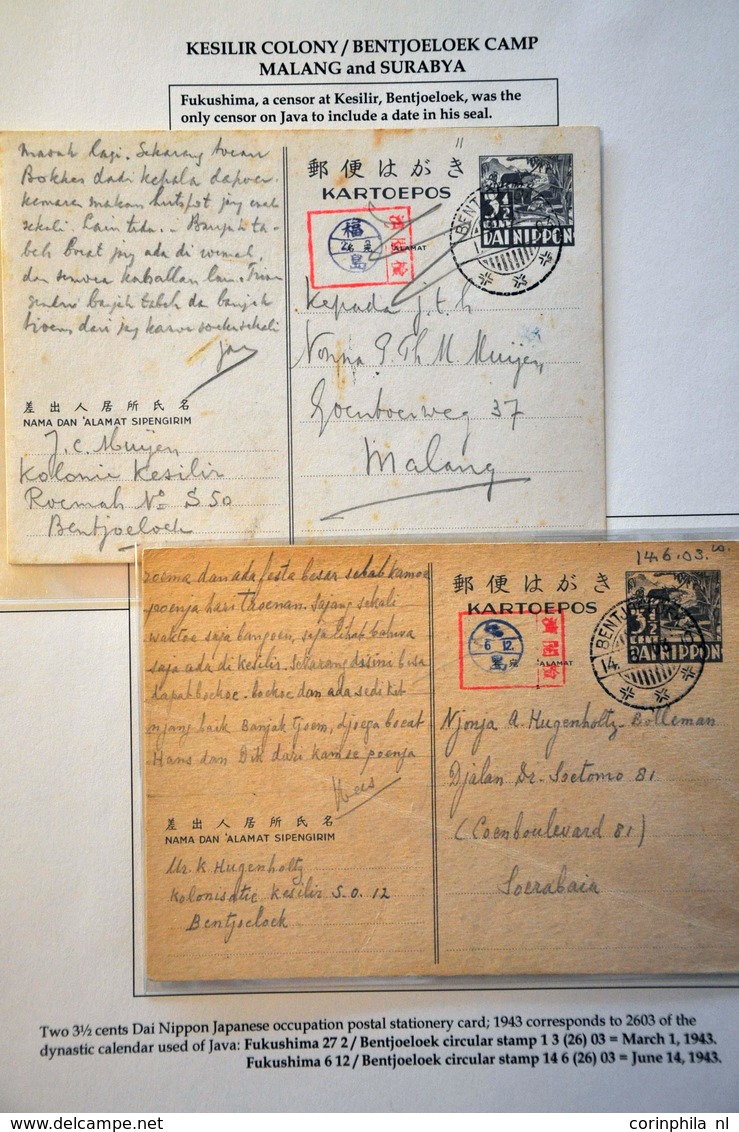 KESILIR COLONY / BENTJOELOEK CAMP
MALANG and SURABYA
Fukushima, a censor at Kesilir, Bentjoeloek, was the
only censor on Java to include a date in his seal.
masuk lagi. Sekarang toean
Bokkes dadi kepala dapoer.
kemaren makan hutspot jng enak
sekali. Lain tida. - Banjak ta-
beh boeat jng ada di roemah,
dan semoea kaballan lain. Trima
sendiri banjak tabeh dan banjak
tjioem dari jng
郵便はがき
KARTOEPOS
3½
CENT
DAI NIPPON
福
島
ALAMAT
Kepada j.t.h
Nonna G. Th. M. Muijen
Goentoerweg 37
Malang
差出人居所氏名
NAMA DAN ALAMAT SIPENGIRIM
J. C. Muijen
Kolonie Kesilir
Roemah No S 50
Bentjoeloek
14.6.03.
roema dan ada festa besar sebab kamoe
poenja hari taoenan. Sajang sekali
waktoe saja bangoen, saja lihat bahwa
saja ada di Kesilir. Sekarang disini bisa
dapat boekoe-boekoe dan ada sedikit
njang baik. Banjak tjoem, djoega boeat
Hans dan Dik dari kamoe poenja
Kees
郵便はがき
KARTOEPOS
3½
CENT
DAI NIPPON
BENTJOELOEK
14.
福
6 12.
島
ALAMAT
Njonja A. Hugenholtz-Bolleman
Djalan Dr. Soetomo 81
(Coenboulevard 81)
Soerabaia
差出人居所氏名
NAMA DAN ALAMAT SIPENGIRIM
Mr. K Hugenholtz
Kolonisatie Kesilir S.O. 12
Bentjoeloek
Two 3½ cents Dai Nippon Japanese occupation postal stationery card; 1943 corresponds to 2603 of the
dynastic calendar used of Java: Fukushima 27 2 / Bentjoeloek circular stamp 1 3 (26) 03 = March 1, 1943.
Fukushima 6 12 / Bentjoeloek circular stamp 14 6 (26) 03 = June 14, 1943.
corinphila nl